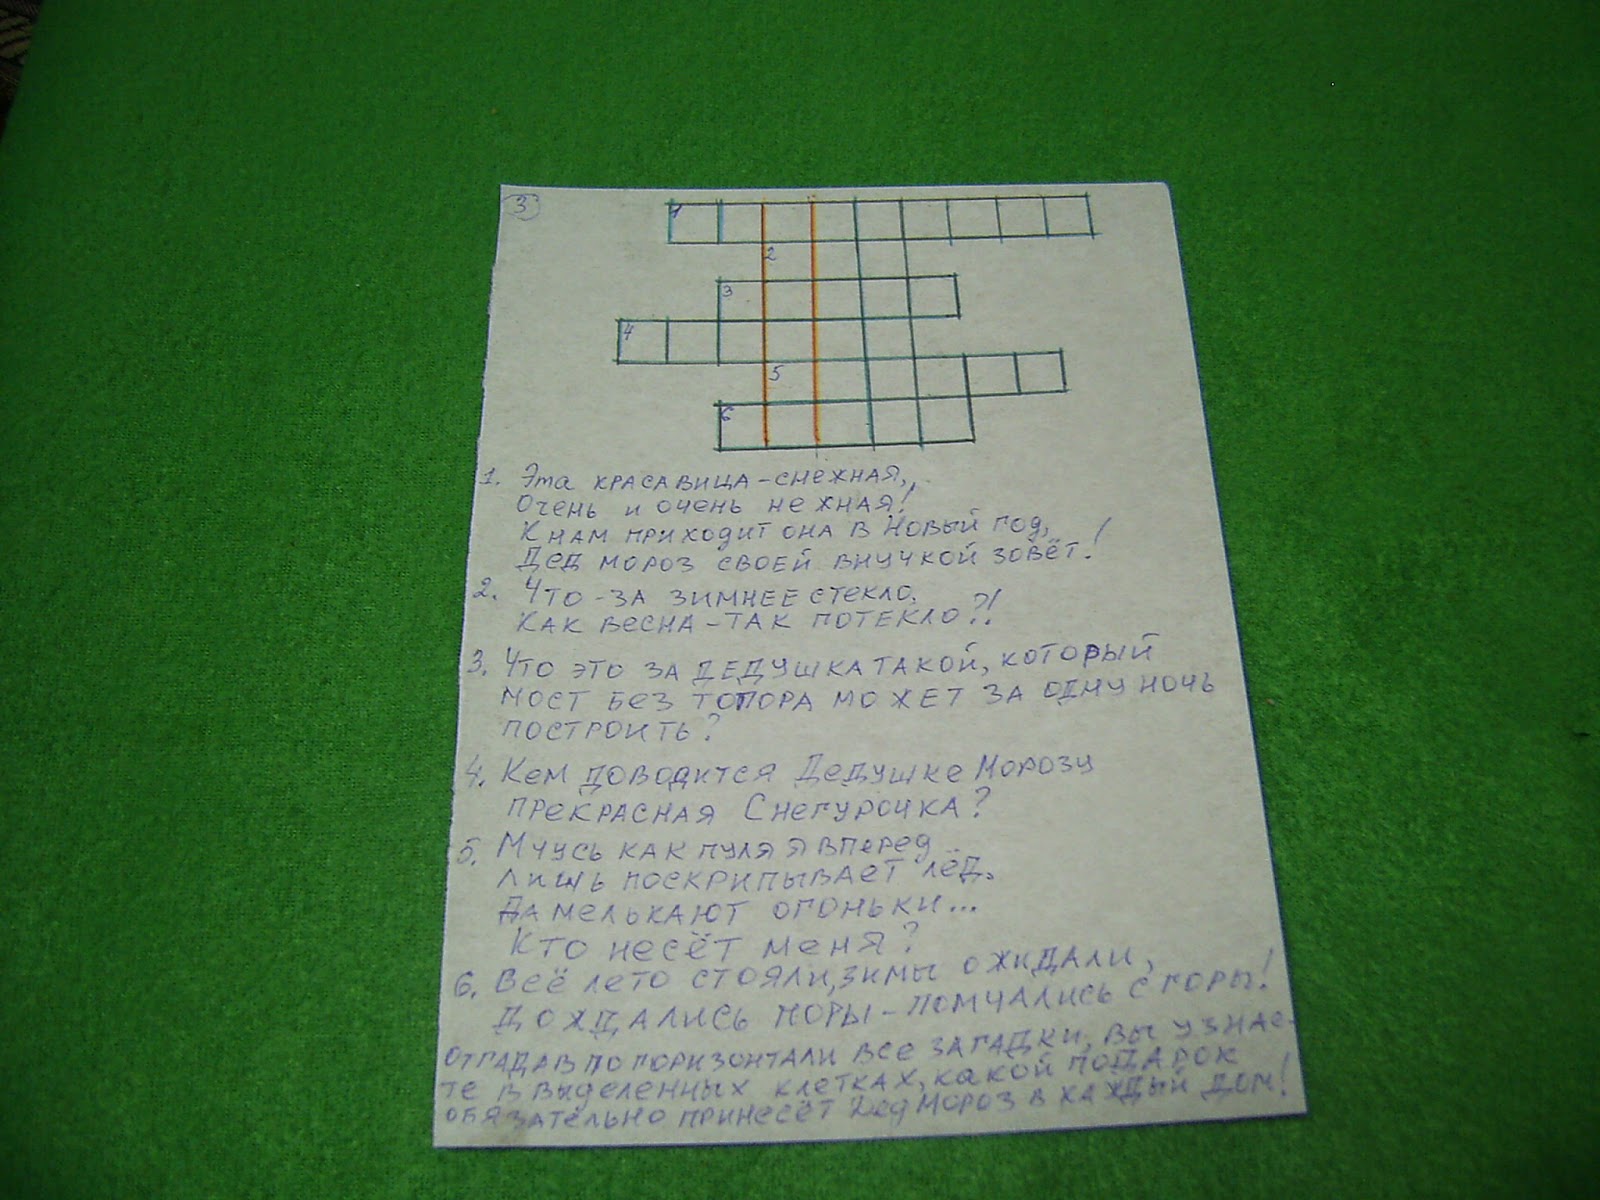 3
1
2
3
4
5
6
1. Эта красавица-снежная,
Очень и очень нежная!
К нам приходит она в Новый год,
Дед мороз своей внучкой зовёт!
2. Что-за зимнее стекло.
Как весна-так потекло?!
3. Что это за дедушка такой, который
мост без топора может за одну ночь
построить?
4. Кем доводится Дедушке Морозу
прекрасная Снегурочка?
5. Мчусь как пуля я вперед
лишь поскрипывает лёд.
Да мелькают огоньки...
Кто несёт меня?
6. Всё лето стояли, зимы ожидали,
дождались поры-помчались с горы!
Отгадав по горизонтали все загадки, вы узнае-
те в выделенных клетках, какой подарок
обязательно принесёт Дед Мороз в каждый дом!